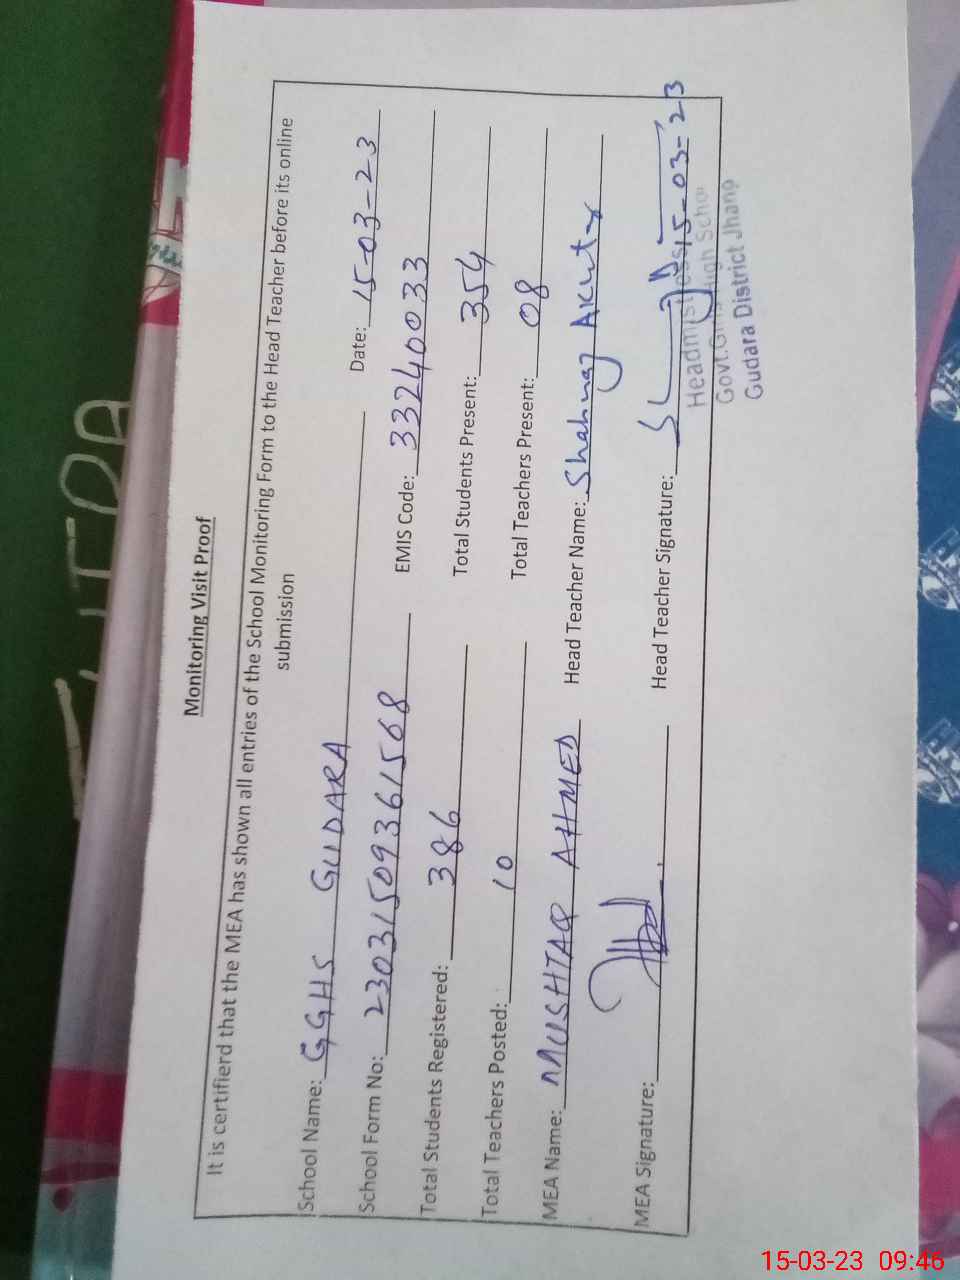 Monitoring Visit Proof
It is certifierd that the MEA has shown all entries of the School Monitoring Form to the Head Teacher before its online
submission
School Name: GGHS GUDARA Date: 15-03-23
School Form No: 23031509361568 EMIS Code: 33240033
Total Students Registered: 386 Total Students Present: 354
Total Teachers Posted: 10 Total Teachers Present: 08
MEA Name: MUSHTAQ AHMED Head Teacher Name: Shahnaz Akhtr
MEA Signature: Head Teacher Signature:
15-03-'23
Headmistress
Govt. Girls High Schoo
Gudara District Jhang
15-03-23 09:46